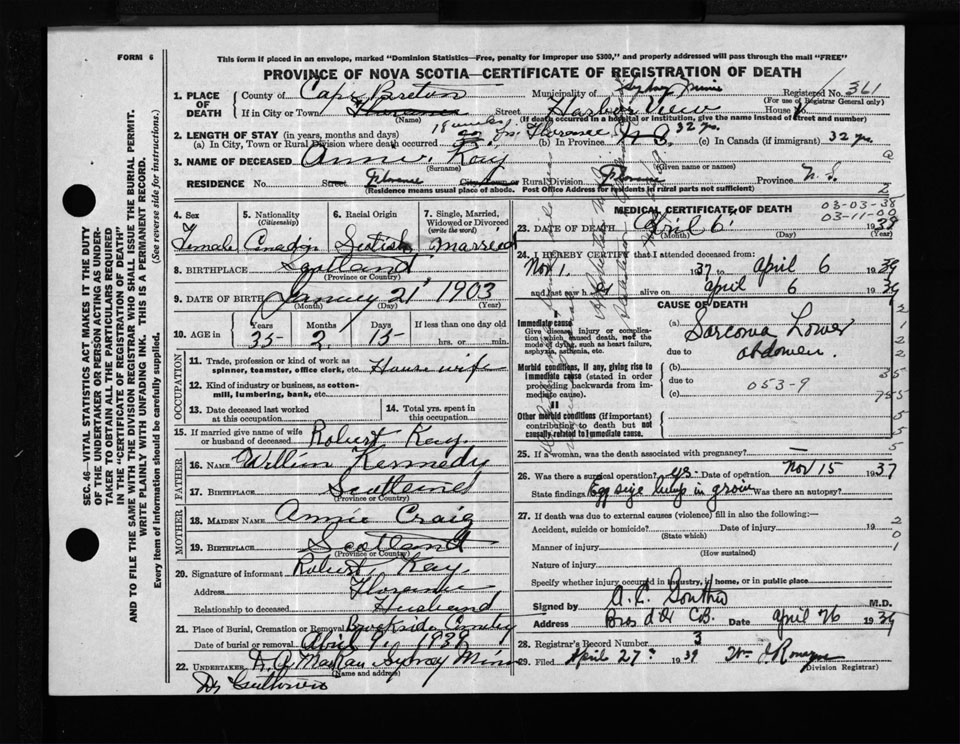 FORM 6
This form if placed in an envelope, marked "Dominion Statistics—Free, penalty for improper use $300," and properly addressed will pass through the mail "FREE"
PROVINCE OF NOVA SCOTIA—CERTIFICATE OF REGISTRATION OF DEATH
1. PLACE OF DEATH County of Cape Breton Municipality of Sydney Mines Registered No. 361
(For use of Registrar General only)
If in City or Town Florence Street Harbor View House
(Name) (If death occurred in a hospital or institution, give the name instead of street and number)
2. LENGTH OF STAY (in years, months and days)
(a) In City, Town or Rural Division where death occurred Florence (b) In Province N.S. 32 yrs. (c) In Canada (if immigrant) 32 yrs
3. NAME OF DECEASED Annie Kay
(Surname) (Given name or names)
RESIDENCE No. Street Florence City, town or Rural Division Florence Province N.S.
(Residence means usual place of abode. Post Office Address for residents in rural parts not sufficient)
4. Sex Female
5. Nationality (Citizenship) Canadian
6. Racial Origin Scotish
7. Single, Married, Widowed or Divorced (write the word) Married
8. BIRTHPLACE Scotland
(Province or Country)
9. DATE OF BIRTH January 21 1903
(Month) (Day) (Year)
10. AGE in Years 35 Months 2 Days 15 If less than one day old hrs. or min.
OCCUPATION
11. Trade, profession or kind of work as spinner, teamster, office clerk, etc. House wife
12. Kind of industry or business, as cotton-mill, lumbering, bank, etc.
13. Date deceased last worked at this occupation
14. Total yrs. spent in this occupation
15. If married give name of wife or husband of deceased Robert Kay.
FATHER
16. NAME William Kennedy
17. BIRTHPLACE Scotland
(Province or Country)
MOTHER
18. MAIDEN NAME Annie Craig
19. BIRTHPLACE Scotland
(Province or Country)
20. Signature of informant Robert Kay.
Address Florence
Relationship to deceased Husband
21. Place of Burial, Cremation or Removal Brookside Cemetry
Date of burial or removal April 9, 1939
22. UNDERTAKER Sydney Mines
(Name and address)
03-03-38
03-11-00
MEDICAL CERTIFICATE OF DEATH
23. DATE OF DEATH April 6 1939
(Month) (Day) (Year)
24. I HEREBY CERTIFY that I attended deceased from:
Nov 1. 1937 to April 6 1939
and last saw h alive on April 6 1939
CAUSE OF DEATH
Immediate cause
Give disease, injury or complication which caused death, not the mode of dying, such as heart failure, asphyxia, asthenia, etc.
(a) Sarcoma Lower
due to abdomen.
Morbid conditions, if any, giving rise to immediate cause (stated in order proceeding backwards from immediate cause).
(b)
due to 053-9
(c)
II
Other morbid conditions (if important) contributing to death but not causally related to immediate cause.
25. If a woman, was the death associated with pregnancy? —
26. Was there a surgical operation? yes. Date of operation Nov 15 1937
State findings Egg size lump in groin Was there an autopsy?
27. If death was due to external causes (violence) fill in also the following:—
Accident, suicide or homicide? Date of injury 19
(State which)
Manner of injury
(How sustained)
Nature of injury
Specify whether injury occurred in industry, in home, or in public place
Signed by M.D.
Address Bras d'Or C.B. Date April 26 1939
28. Registrar's Record Number 3
29. Filed April 27 1939
(Division Registrar)
SEC. 46—VITAL STATISTICS ACT MAKES IT THE DUTY OF THE UNDERTAKER OR PERSON ACTING AS UNDERTAKER TO OBTAIN ALL THE PARTICULARS REQUIRED IN THE "CERTIFICATE OF REGISTRATION OF DEATH"
AND TO FILE THE SAME WITH THE DIVISION REGISTRAR WHO SHALL ISSUE THE BURIAL PERMIT.
WRITE PLAINLY WITH UNFADING INK. THIS IS A PERMANENT RECORD.
Every item of information should be carefully supplied. (See reverse side for instructions.)